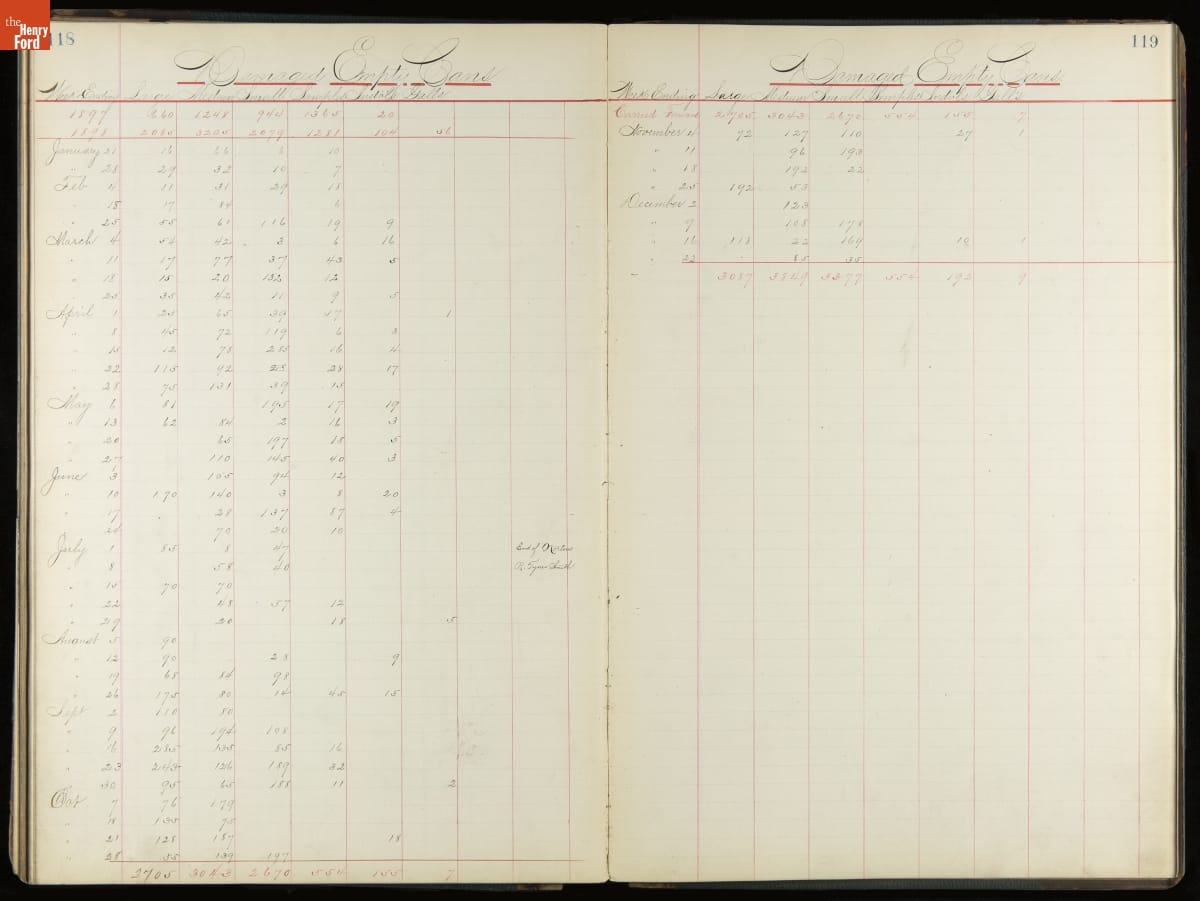 the Henry Ford
118
Damaged Empty Cans
Week Ending Large Medium Small Samples Gills
1897 660 1248 944 1365 20
1898 2085 3205 2079 1281 104 56
January 21 16 66 6 10
" 28 29 32 10 7
Feb 4 11 31 29 18
" 18 17 84 6
" 25 55 61 116 19 9
March 4 54 42 3 6 16
" 11 17 77 37 43 5
" 18 15 20 132 12
" 25 35 42 11 9 5
April 1 25 65 39 57 1
" 8 45 72 119 6 3
" 15 12 78 235 16 4
" 22 115 92 28 17
" 28 75 131 39 15
May 6 81 195 17 19
" 13 62 84 2 16 3
" 20 65 197 18 5
" 27 110 145 40 3
June 3 105 94 12
" 10 170 140 3 8 20
" 17 28 137 87 4
" 24 70 20 10
July 1 85 8 47 End of
" 8 58 40 R. Tynes Smith
" 15 70 70
" 22 48 57 12
" 29 20 18 5
August 5 90
" 12 90 28 9
" 19 68 84 98
" 26 175 80 14 45 15
Sept 2 110 80
" 9 96 194 108
" 16 285 135 85 16
" 23 243 126 189 32
" 30 95 65 188 11 2
Oct 7 76 179
" 18 135 75
" 21 128 187 18
" 28 55 139 197
2705 3043 2670 554 155 7
119
Damaged Empty Cans
Week Ending Large Medium Small Samples Gills
Carried Forward 2705 3043 2670 554 155 7
November 4 72 127 110 27 1
" 11 96 193
" 18 192 22
" 25 192 53
December 2 123
" 9 108 178
" 16 118 22 169 10 1
" 23 85 35
3087 3849 3377 554 192 9